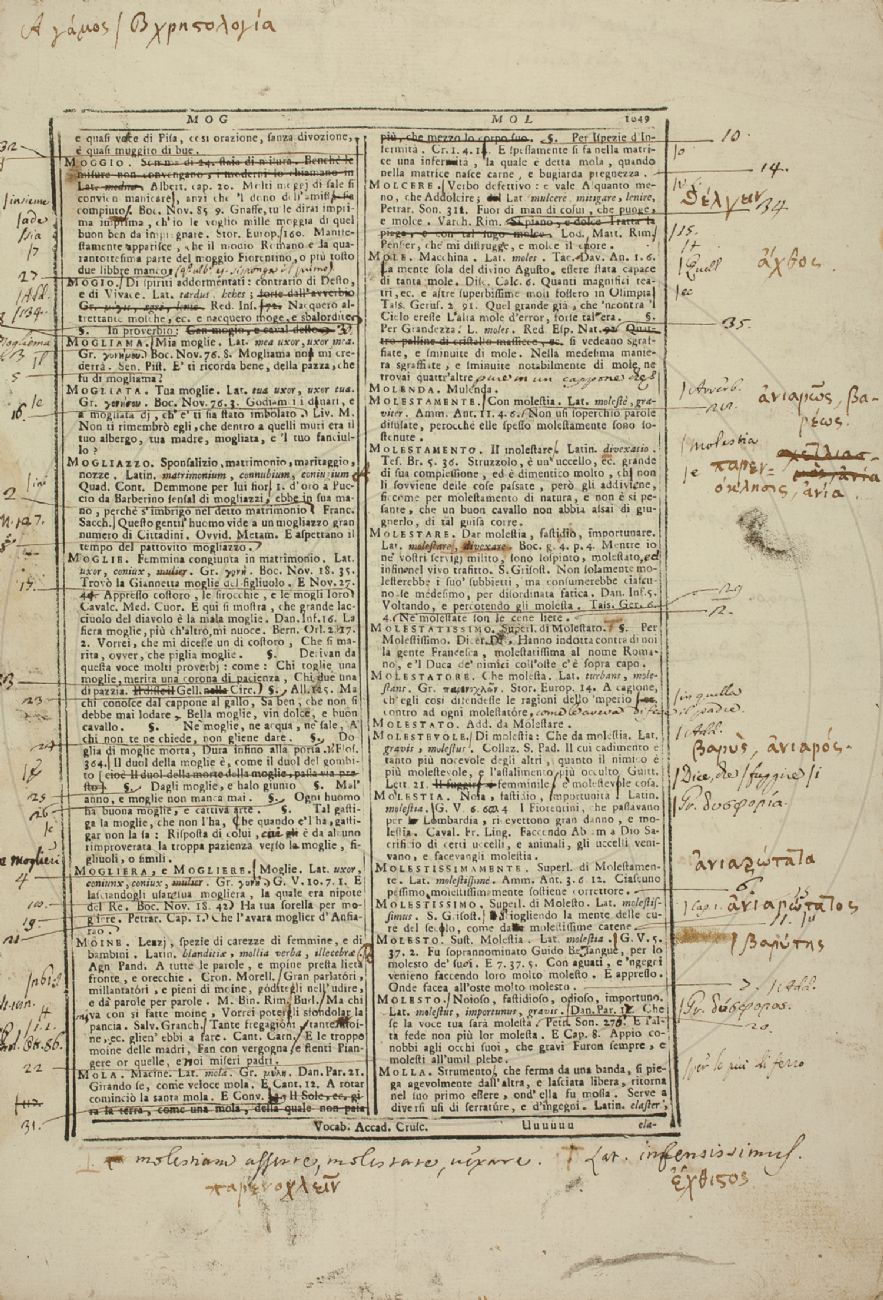 Α γάμος / Β χρηστολογία
MOG
MOL
1049
e quasi voce di Pisa, così orazione, sanza divozione,
è quasi muggito di bue.
MOGGIO. Somma di 24. staia di misura. Benchè le
misure non convengano, i moderni lo chiamano in
Lat. modius. Albert. cap. 20. Molti moggj di sale si
convien manicare, anzi che 'l dono dell'
compiuto. Boc. Nov. 85 9. Gnaffe, tu le dirai imprima
in prima, ch'io le voglio mille moggia di quel
buon ben da impregnare. Stor. Europ. 160. Manifestamente
stamente apparisce, che il modio Romano è la quarantottesima
rantottesima parte del moggio Fiorentino, o più tosto
due libbre manco.
MOGIO. Di spiriti addormentati: contrario di Desto,
e di Vivace. Lat. tardus, hebes;
trettante mosche, ec. e nacquero moge, e sbalordite.
§. In proverbio: Can mogio, e caval desto.
MOGLIAMA. Mia moglie. Lat. mea uxor, uxor mea.
Gr. Boc. Nov. 76. 8. Mogliama non mi crederrà.
derrà. Sen. Pist. E' ti ricorda bene, della pazza, che
fu di mogliama?
MOGLIATA. Tua moglie. Lat. tua uxor, uxor tua.
Boc. Nov. 76. 3. Godiamci i danari, e
a mogliata dì, ch'e' ti sia stato imbolato. Liv. M.
Non ti rimembrò egli, che dentro a quelli muri era il
tuo albergo, tua madre, mogliata, e 'l tuo fanciullo?
lo?
MOGLIAZZO. Sponsalizio, matrimonio, maritaggio,
nozze. Latin. matrimonium, connubium, coniugium.
Quad. Cont. Demmone per lui fior. 1. d'oro a Puccio
cio da Barberino sensal di mogliazzi, ebbe in sua mano,
no, perchè s'imbrigò nel detto matrimonio. Franc.
Sacch. Questo gentil' huomo vide a un mogliazzo gran
numero di Cittadini. Ovvid. Metam. E aspettano il
tempo del pattovito mogliazzo.
MOGLIE. Femmina congiunta in matrimonio. Lat.
uxor, coniux, mulier. Gr. γυνή. Boc. Nov. 18. 35.
Trovò la Giannetta moglie del figliuolo. E Nov. 27.
44. Appresso costoro, le sirocchie, e le mogli loro
Cavalc. Med. Cuor. E qui si mostra, che grande lacciuolo
ciuolo del diavolo è la mala moglie. Dan. Inf. 16. La
fiera moglie, più ch'altro, mi nuoce. Bern. Orl. 2. 27.
2. Vorrei, che mi dicesse un di costoro, Che si marita,
rita, ovver, che piglia moglie. §. Derivan da
questa voce molti proverbj: come: Chi toglie una
moglie, merita una corona di pacienza, Chi due una
di pazzia.
chi conosce dal cappone al gallo, Sa ben, che non si
debbe mai lodare, Bella moglie, vin dolce, e buon
cavallo. §. Ne moglie, ne acqua, ne sale, A
chi non te ne chiede, non gliene dare. §. Doglia
glia di moglie morta, Dura infino alla porta.
364. Il duol della moglie è, come il duol del gombito
to (cioè Il duol della morte della moglie, passa via presto).
§. Dagli moglie, e halo giunto §. Mal'
anno, e moglie non manca mai. §. Ogni huomo
ha buona moglie, e cattiva arte. §. Tal gastiga
ga la moglie, che non l'ha, Che quando e' l ha, gastigar
gar non la sa: Risposta di colui, cui è da alcuno
rimproverata la troppa pazienza verso la moglie, figliuoli,
gliuoli, o simili.
MOGLIERA, e MOGLIERE. Moglie. Lat. uxor,
coniunx, coniux, mulier. Gr. γυνή. G. V. 10. 7. 1. E
lasciandogli usanzua mogliera, la quale era nipote
del Re. Boc. Nov. 18. 42. Ha tua sorella per mogliere.
gliere. Petrar. Cap. 1. Che l'avara moglier d'Anfiarao.
rao.
MOINE. Lezzj, spezie di carezze di femmine, e di
bambini. Latin. blanditiæ, mollia verba, illecebræ
Agn. Pand. A tutte le parole, e moine presta lieta
fronte, e orecchie. Cron. Morell. Gran parlatori,
millantatori, e pieni di moine, godetegli nell'udire,
e dà parole per parole. M. Bin. Rim. Burl. Ma chi
viva con sì fatte moine, Vorrei potergli sfondolar la
pancia. Salv. Granch. Tante fregagioni, tante moine,
ne, ec. glien' ebbi a fare. Cant. Carn. E le troppe
moine delle madri, Fan con vergogna, e stenti Piangere
gere or quelle, e noi miseri padri.
MOLA. Macine. Lat. mola. Gr. μύλη. Dan. Par. 21.
Girando se, come veloce mola. E Cant. 12. A rotar
cominciò la santa mola. E Conv. Il Sole, ec. gira
ra la terra, come una mola, della quale non paia
più, che mezzo lo corpo suo. §. Per Ispezie d'Infermità.
fermità. Cr. 1. 4. 14. E spessamente si fa nella matrice
ce una infermità, la quale è detta mola, quando
nella matrice nasce carne, e bugiarda pregnezza.
MOLCERE. Verbo defettivo: e vale Alquanto meno,
no, che Addolcire; Lat. mulcere, mitigare, lenire,
Petrar. Son. 311. Fuor di man di colui, che punge,
e molce. Varch. Rim. Sì piano, e dolce tratta la
piega, e con tal sugo molce. Lod. Matt. Rim.
Pensier, che mi distrugge, e molce il cuore.
MOLE. Macchina. Lat. moles. Tac. Dav. An. 1. 6.
La mente sola del divino Agusto, essere stata capace
di tanta mole. Disc. Calc. 6. Quanti magnifici teatri,
tri, ec. e altre superbissime moli fossero in Olimpia
Tass. Gerus. 2. 91. Quel grande già, che 'ncontra 'l
Cielo eresse L'alta mole d'error, forse tal'era. §.
Per Grandezza. L. moles. Red. Esp. Nat. Quattro
palline di cristallo massicce, ec. si vedeano sgraffiate,
fiate, e sminuite di mole. Nella medesima maniera
ra sgraffiate, e sminuite notabilmente di mole, ne
trovai quattr'altre pure in un cappone
MOLENDA. Mulenda.
MOLESTAMENTE. Con molestia. Lat. molestè, graviter.
viter. Amm. Ant. 11. 4. 6. Non usi soperchio parole
disusate, perocchè elle spesso molestamente sono sostenute.
stenute.
MOLESTAMENTO. Il molestare. Latin. divexatio.
Tes. Br. 5. 36. Struzzolo, è un'uccello, ec. grande
di sua complessione, ed è dimentico molto, ch[i] non
li sovviene delle cose passate, però gli addiviene,
siccome per molestamento di natura, e non è sì pesante,
sante, che un buon cavallo non abbia assai di giugnerlo,
gnerlo, di tal guisa corre.
MOLESTARE. Dar molestia, fastidio, importunare.
Lat. molestare, divexare. Boc. g. 4. p. 4. Mentre io
ne' vostri servigj milito, sono sospinto, molestato, ed
infino nel vivo trafitto. S. Grisost. Non solamente molesterebbe
lesterebbe i suo' subbietti, ma consumerebbe ciascuno
no se medesimo, per disordinata fatica. Dan. Inf. 5.
Voltando, e percotendo gli molesta. Tass. Ger. 6.
4. Ne molestate son le cene liete.
MOLESTATISSIMO. Superl. di Molestato. §. Per
Molestissimo. Hanno indotta contra di noi
la gente Francesca, molestatissima al nome Romano,
no, e 'l Duca de' nimici coll'oste c'è sopra capo.
MOLESTATORE. Che molesta. Lat. turbans, molestans.
stans. Gr. Stor. Europ. 14. A cagione,
ch'egli così difendesse le ragioni dello 'mperio
contro ad ogni molestatore,
MOLESTATO. Add. da Molestare.
MOLESTEVOLE. Di molestia: Che da molestia. Lat.
gravis, molestus. Collaz. S. Pad. Il cui cadimento e
tanto più nocevole degli altri, quanto il nimico è
più molestevole, e l'assalimento più occulto. Guitt.
Lett. 21. Il suggire femminile, è molestevole cosa.
MOLESTIA. Noia, fastidio, importunità. Latin.
molestia. G. V. 6. 60. 1. I Fiorentini, che passavano
per Lombardia, ricevettono gran danno, e molestia.
lestia. Caval. Fr. Ling. Faccendo Abram a Dio Sacrificio
crificio di certi uccelli, e animali, gli uccelli venivano,
vano, e facevangli molestia.
MOLESTISSIMAMENTE. Superl. di Molestamente.
te. Lat. molestissimè. Amm. Ant. 3. 6. 12. Ciascuno
pessimo, molestissimamente sostiene correttore.
MOLESTISSIMO. Superl. di Molesto. Lat. molestissimus.
simus. S. Grisost. isciogliendo la mente delle cure
re del secolo, come da molestissime catene.
MOLESTO. Sust. Molestia. Lat. molestia. G. V. 5.
37. 2. Fu soprannominato Guido Besangue, per lo
molesto de' suoi. E 7. 37. 5. Con aguati, e 'ngegni
venieno faccendo loro molto molesto. E appresso.
Onde facea all'oste molto molesto.
MOLESTO. Noioso, fastidioso, odioso, importuno.
Lat. molestus, importunus, gravis. Dan. Par. 17. Che
se la voce tua sarà molesta. Petr. Son. 276. E l'alta
ta fede non più lor molesta. E Cap. 8. Appio conobbi
nobbi agli occhi suoi, che gravi Furon sempre, e
molesti all'umil plebe.
MOLLA. Strumento, che ferma da una banda, si piega
ga agevolmente dall'altra, e lasciata libera, ritorna
nel suo primo essere, ond'ella fu mossa. Serve a
diversi usi di serrature, e d'ingegni. Latin. elater,
Vocab. Accad. Crusc.
Uuuuuu
ela-
10.
14.
θέλγειν
34
15.
ἄχθος.
ec
35.
Avverb.
ἀνιαρῶς, βαρέως.
molestia
παρενόχλησις, ἀνία.
12.
in quella
Add.
βαρὺς, ἀνιαρός.
Dice, che 'l fuggire /i
Gr. δυσφορία.
ἀνιαρώτατα
6.
Cap. 1. ἀνιαρώτατος
βαρύτης
Add.
Gr. δύσφορος.
20.
per lo più di ferro
32
insieme
27
Add.
5
16.
2
15.
23
24
25
26
Moglieri
4
19.
21
22
31.
molestiam afferre, molestare, vexare. † Lat. infensissimus.
παρενοχλεῖν
ἔχθιστος